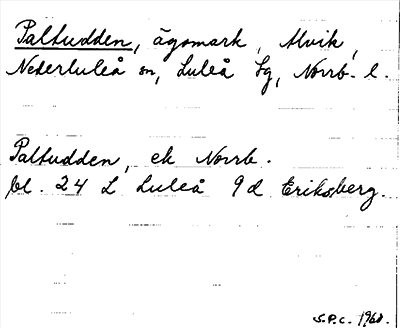 Paltudden, ägomark, Alvik,
Nederluleå sn, Luleå tg, Norrb. l.
Paltudden, ek Norrb.
bl. 24 L Luleå 9d Eriksberg.
S.P.C. 1960.